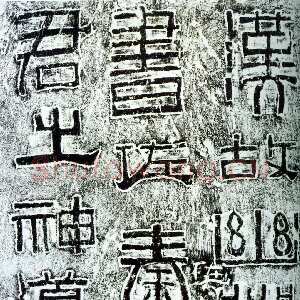 漢故幽
書佐秦
君之神道